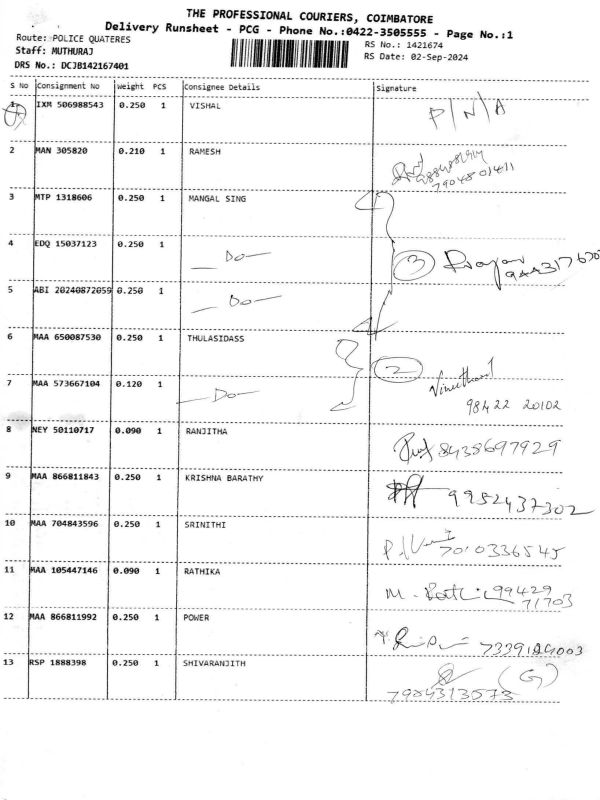 THE PROFESSIONAL COURIERS, COIMBATORE
Delivery Runsheet - PCG - Phone No.:0422-3505555 - Page No.:1
Route: POLICE QUATERES
Staff: MUTHURAJ
DRS No.: DCJB142167401
RS No.: 1421674
RS Date: 02-Sep-2024
S No Consignment No Weight PCS Consignee Details Signature
1 IXM 506988543 0.250 1 VISHAL P/N/A
2 MAN 305820 0.210 1 RAMESH
7904801411
3 MTP 1318606 0.250 1 MANGAL SING
4 EDQ 15037123 0.250 1 —Do— 3
5 ABI 20240872059 0.250 1 —Do—
6 MAA 650087530 0.250 1 THULASIDASS 2
7 MAA 573667104 0.120 1 —Do—
98422 20102
8 NEY 50110717 0.090 1 RANJITHA 8438697929
9 MAA 866811843 0.250 1 KRISHNA BARATHY 9952437302
10 MAA 704843596 0.250 1 SRINITHI 7010336545
11 MAA 105447146 0.090 1 RATHIKA 99429
71703
12 MAA 866811992 0.250 1 POWER
13 RSP 1888398 0.250 1 SHIVARANJITH (G)
7984313573